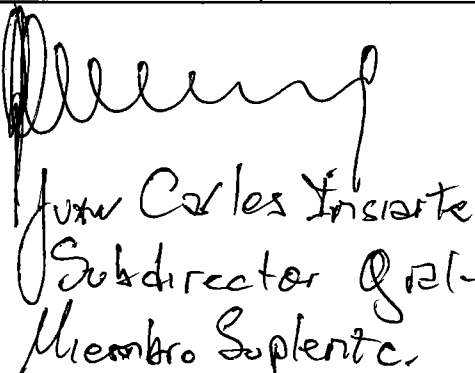 Juan Carlos Insiarte
Subdirector Gral-
Miembro Suplente.